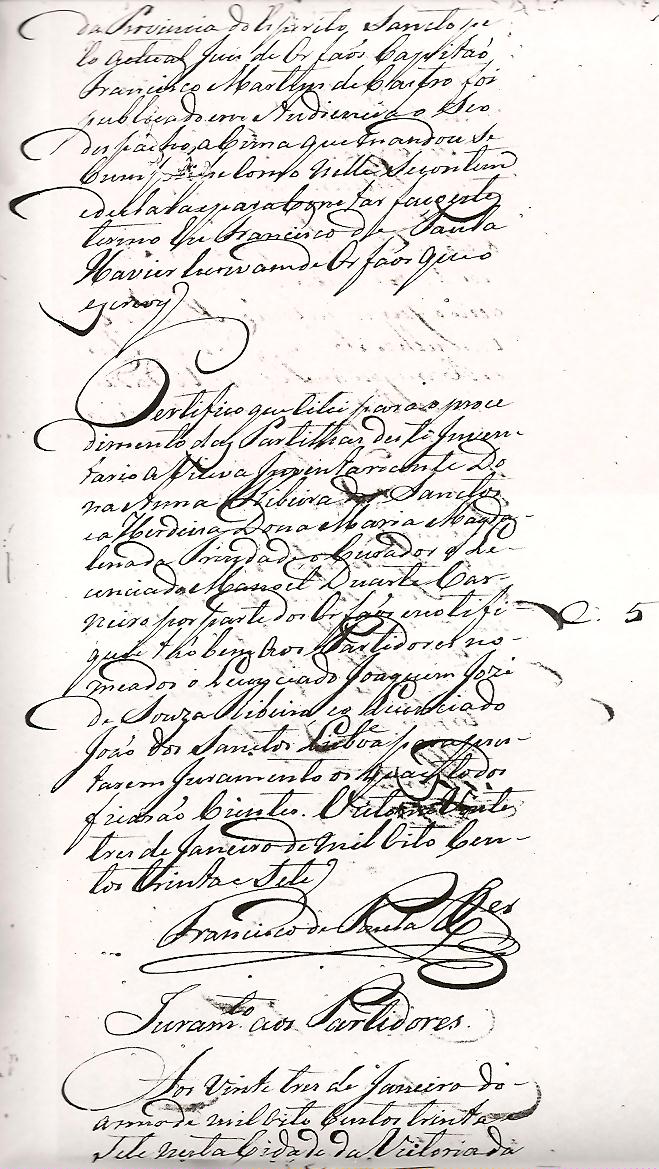 da Provincia do Espirito Sancto pe
lo actual Juis de Orfaõs Capitaõ
Francisco Martins de Castro foi
publicado em Audiencia o Seo
despacho, acima que mandou se
Como nelle Se contem
e declara, e para constar faço este
termo Eu Francisco de Paula
Xavier Escrivam de Orfaõs que o
escrevy
Certifico que citei para o proce
dimento das Partilhas deste Inven-
tario a Viuva Inventariante Do
na Anna Ribeira dos Sanctos
e a Herdeira Dona Maria Magda-
lena da Trindade, o Curador o Le-
cenciado Manoel Duarte Car-
neiro por parte dos Orfaõs e notifi
quei taõ bem aos Partidores no-
meados o Lecenciado Joaquim Jozé
de Souza Ribeiro, e o Licenciado
Joaõ dos Sanctos Lisboa para pres-
tarem Juramento os quaes todos
ficaraõ Cientes. Victoria Vinte
tres de Janeiro de mil Oito Cen-
tos trinta e Sete
Francisco de Paula Xer
C. 5
Juramto aos Partidores.
Aos Vinte tres de Janeiro do
anno de mil oito Centos trinta e
Sete nesta Cidade da Victoria da